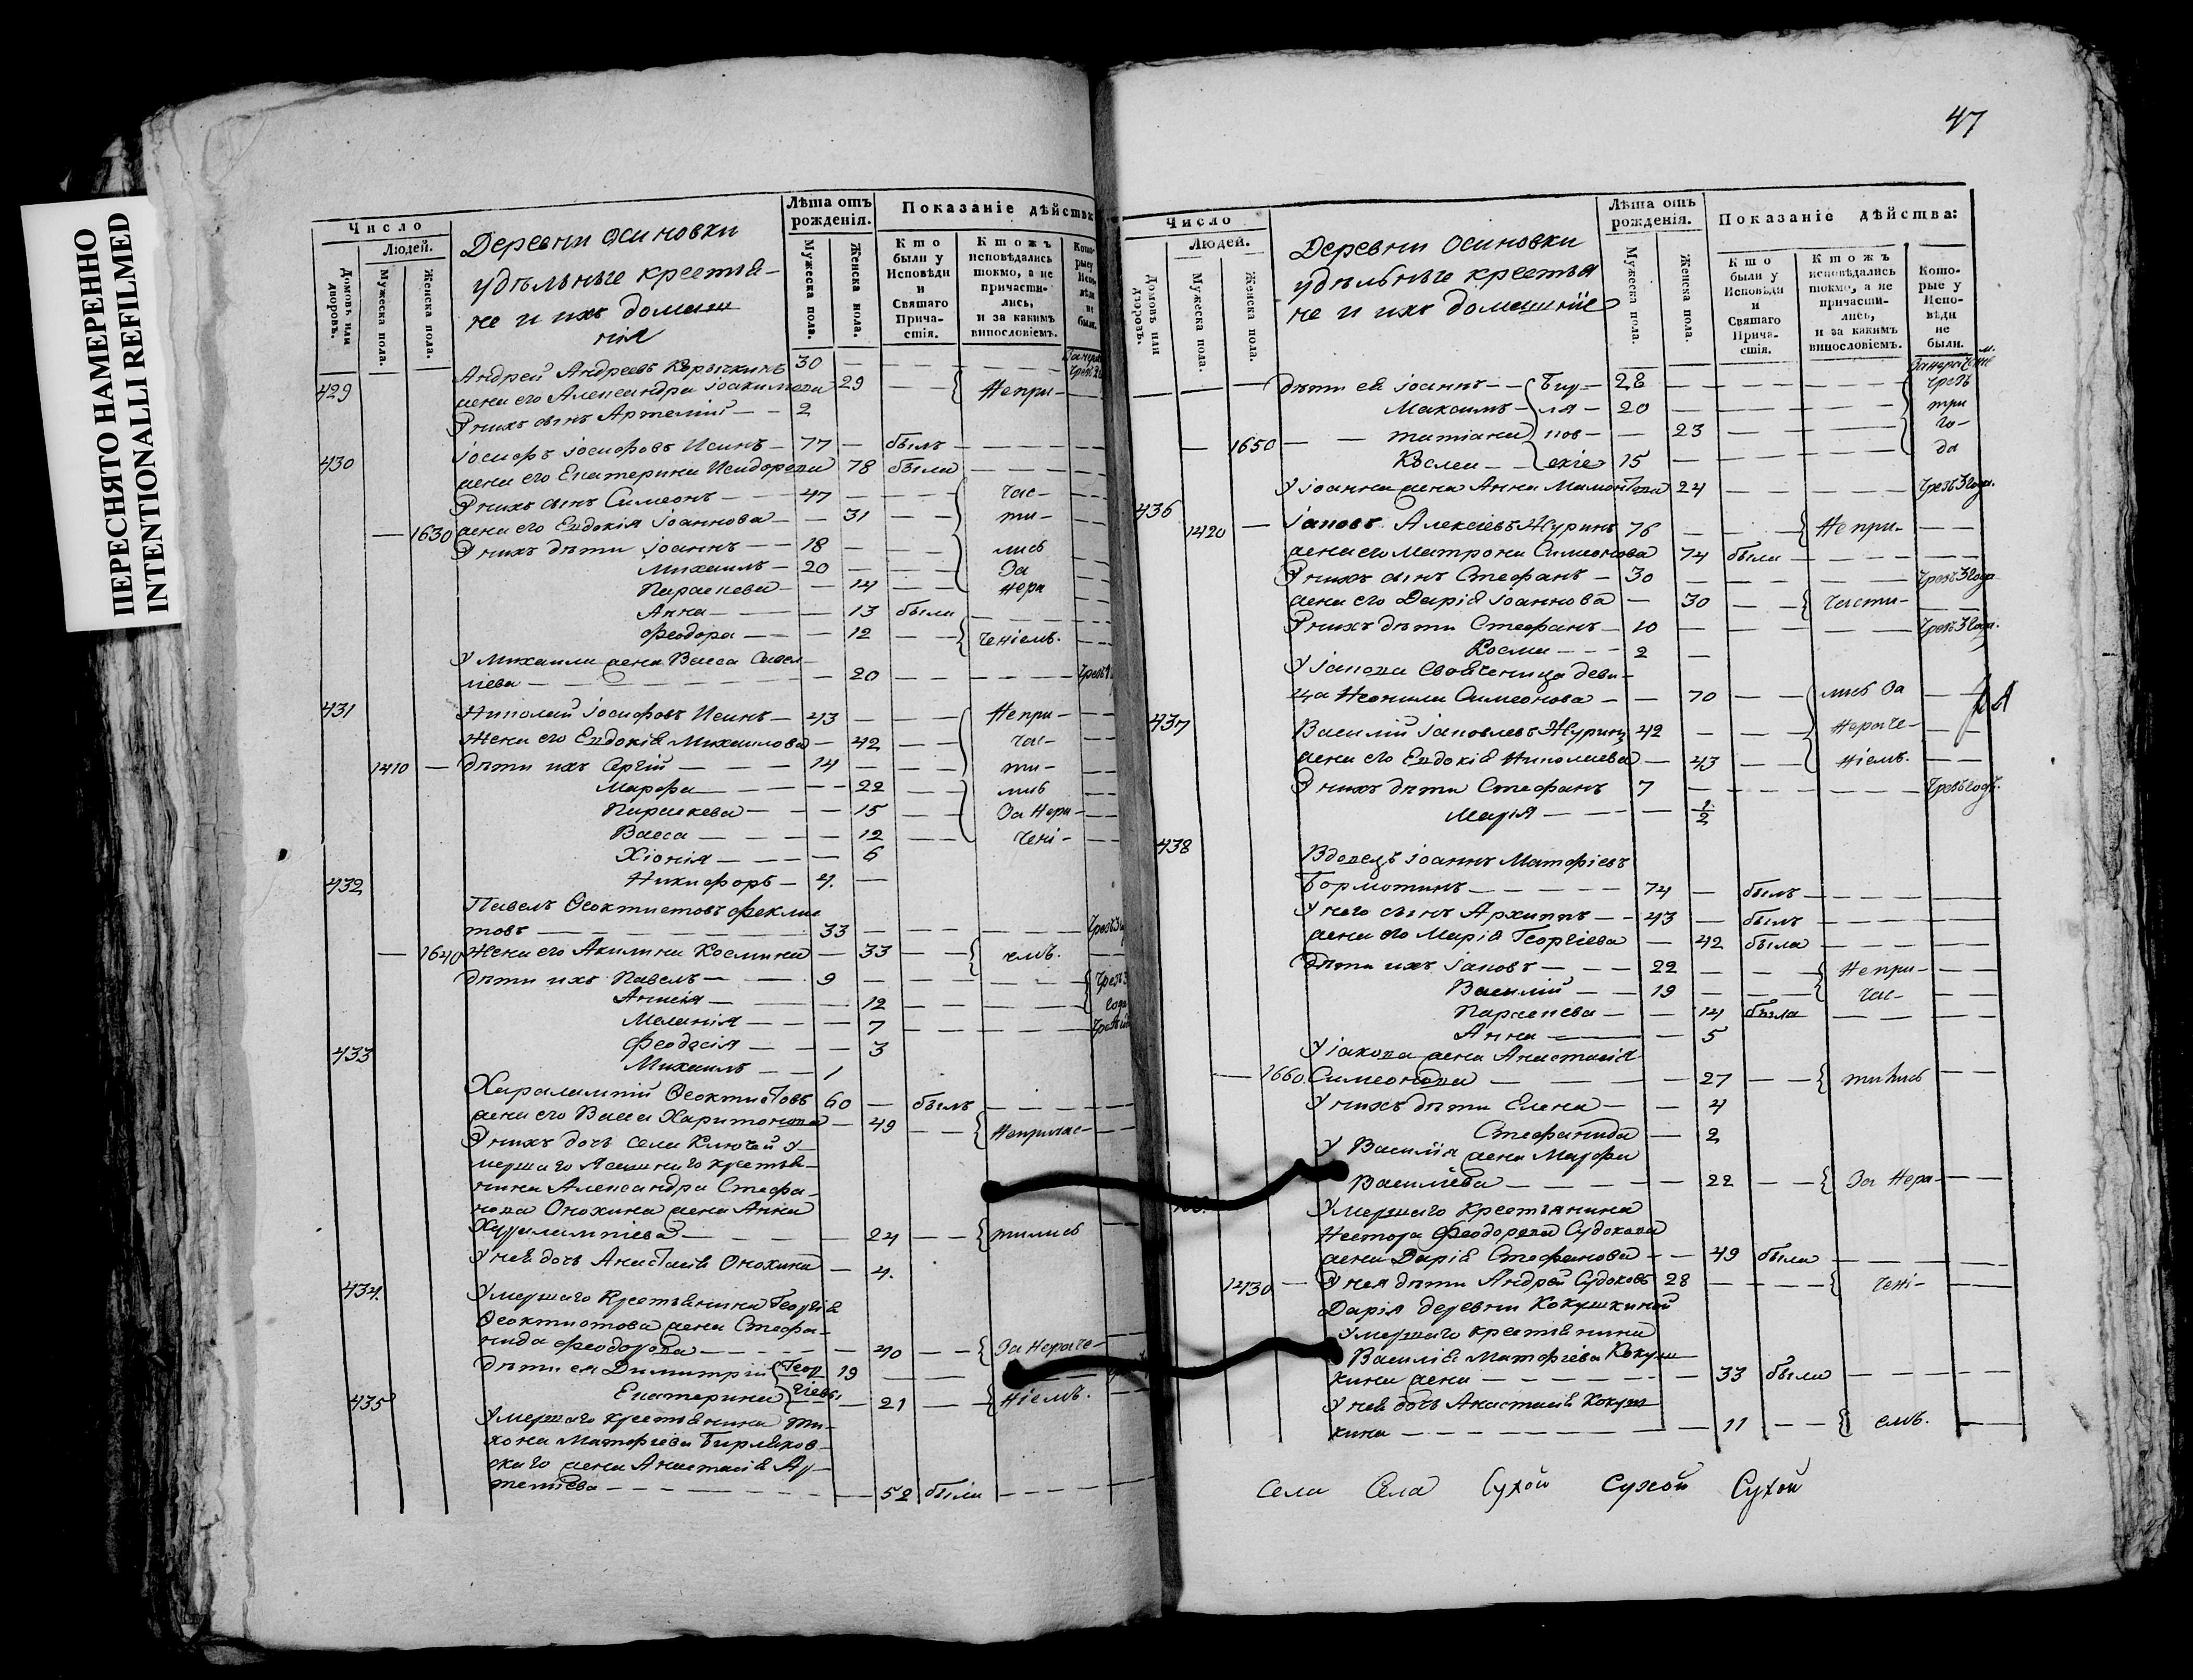 ПЕРЕСНЯТО НАМЕРЕННО
INTENTIONALLI REFILMED
Число
Людей.
Домовъ или дворовъ.
Мужеска пола.
Женска пола.
Деревни Осиновки
удѣльныѣ крестья-
не и ихъ домаш
нія
Лѣта отъ рожденія.
Мужеска пола.
Женска пола.
Показаніе дѣйства
Кто были у Исповѣди и Святаго Причастія.
Ктожъ исповѣдались токмо, а не причастились, и за какимъ винословіемъ.
Андрей Андреевъ 30
429 жена его Александра Іоакимова 29 Непри-
У нихъ сынъ Артемій 2
430 Іосифъ Іосифовъ Исинъ 77 былъ
жена его Екатерина Исидорова 78 была
У нихъ сынъ Симеонъ 47 час-
1630 жена его Евдокія Іоаннова 31 ти-
У нихъ дѣти Іоаннъ 18 лись
Михаилъ 20 За
Параскева 14 нера
Анна 13 была
Феодора 12 ченіемъ.
У Михаила жена Васса Савел
іева 20
431 Николай Іосифовъ Исинъ 43 Непри-
Жена его Евдокія Михаилова 42 час-
1410 дѣти ихъ Сергій 14 ти-
Марфа 22 лись
Параскева 15 За Нера-
Васса 12 чені-
Хіонія 6
432 Никифоръ 4.
Павелъ Ѳеоктистовъ Феклис
товъ 33
1640 Жена его Акилина Космина 33 емъ.
дѣти ихъ Павелъ 9
Анисія 12
Меланія 7
433 Феодосія 3
Михаилъ 1
Харалампій Ѳеоктистовъ 60 былъ
жена его Васса Харитонова 49 Непричас-
У нихъ дочь села Ключей у-
мершаго Ясашнаго крестья-
нина Александра Стефа-
нова Онохина жена Анна
Харалампіева 24 тилась
У нея дочь Анастасія Онохина 4.
434. Умершаго Крестьянина Георгія
Ѳеоктистова жена Стефа-
нида Феодорова 40 За Нераче-
дѣти ея Димитрій Геор 19
Екатерина гіевы 21 ніемъ.
435 Умершаго крестьянина Ти-
хона Матфіева Бирляков-
скаго жена Анастасія Ар-
теміева 52 была
47
Число
Людей.
Домовъ или дворовъ.
Мужеска пола.
Женска пола.
Деревни Осиновки
удѣльныѣ крестья
не и ихъ домашніе
Лѣта отъ рожденія.
Мужеска пола.
Женска пола.
Показаніе дѣйства:
Кто были у Исповѣди и Святаго Причастія.
Ктожъ исповѣдались токмо, а не причастились, и за какимъ винословіемъ.
Которые у Исповѣди не были.
дѣти ея Іоаннъ Бир- 28 чрезъ
Максимъ ля- 20 три
1650 Татіана ков- 23 го-
екіе 15 да
У Іоанна жена Анна Мамонтова 24 Чрезъ 3 года.
436
1420 Іаковъ Алексіевъ Журинъ 76 Непри-
жена его Матрона Симеонова 74 была
У нихъ сынъ Стефанъ 30 Чрезъ 3 года
жена его Дарія Іоаннова 30 части-
У нихъ дѣти Стефанъ 10 Чрезъ 3 года.
Косма 2
У Іакова свояченица деви-
ца Неонила Симеонова 70 лись За
437 Василій Іаковлевъ Журинъ 42 Нераче-
жена его Евдокія Николаева 43 ніемъ.
У нихъ дѣти Стефанъ 7
Марія 1/2
438
Вдовецъ Іоаннъ Матфіевъ
Бормотинъ 74 былъ
У него сынъ Архиппъ 43 былъ
жена его Марія Георгіева 42 была
Дѣти ихъ Іаковъ 22 Непри-
Василій 19 час-
Параскева 14 была
Анна 5
У Іакова жена Анастасія
1660. Симеонова 27 тились
У нихъ дѣти Елена 4
Стефанида 2
У Василія жена Марфа
Василіева 22 За Нера-
Умершаго Крестьянина
Нестора Феодорова Судокова
жена Дарія Стефанова 49 была
1430 У нея дѣти Андрей Судоковъ 28 чені-
Дарія деревни Кокушкиной
Умершаго крестьянина
Василія Матфіева Кокуш
кина жена 33 была
У нея дочь Анастасія Кокуш
кина 11 емъ.
Села Села Сухой Сухой Сухой